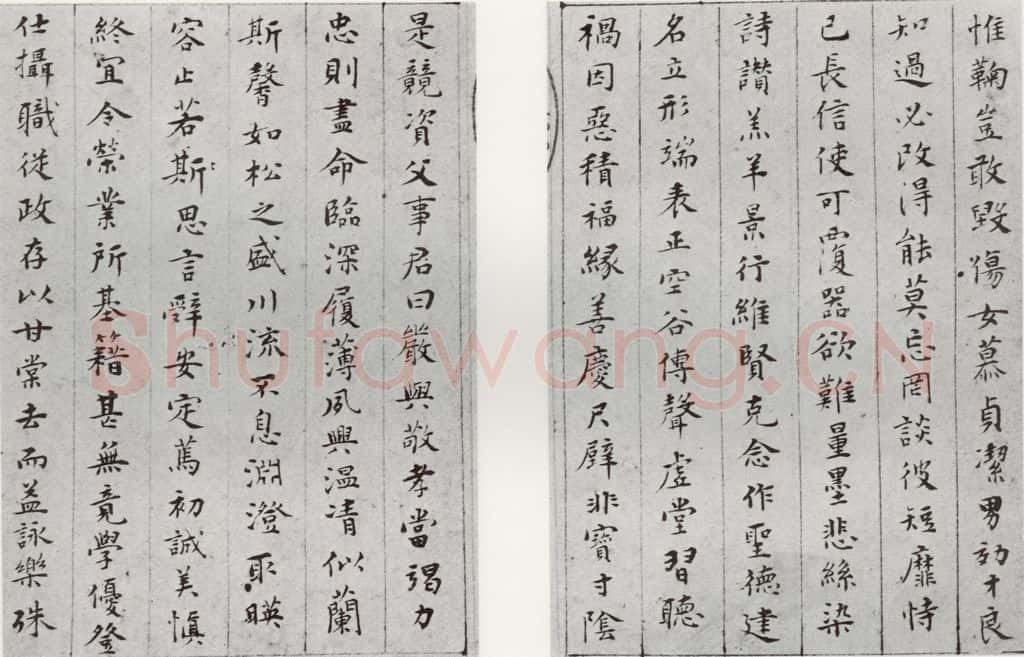 惟鞠豈敢毀傷女慕貞潔男効才良
知過必改得能莫忘罔談彼短靡恃
己長信使可覆器欲難量墨悲絲染
詩讃羔羊景行維賢克念作聖德建
名立形端表正空谷傳聲虛堂習聽
禍因惡積福緣善慶尺璧非寶寸陰
是競資父事君曰嚴與敬孝當竭力
忠則盡命臨深履薄夙興温凊似蘭
斯馨如松之盛川流不息淵澄取暎
容止若斯思言辭安定篤初誠美慎
終宜令榮業所基籍甚無竟學優登
仕攝職從政存以甘棠去而益詠樂殊
Shufawang.CN